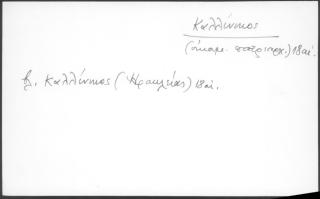 Καλλίνικος
(οἰκουμ. πατριαρχ.) 18 αἰ.
βλ. Καλλίνικος (Ἡρακλείας) 18 αἰ.